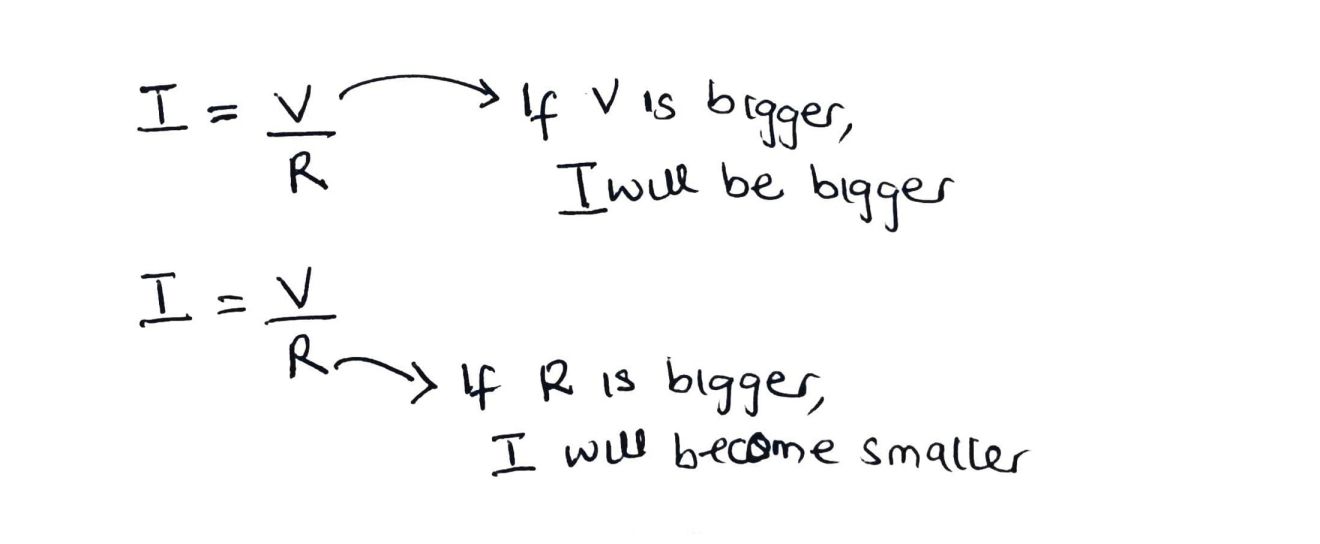 I = V/R → If V is bigger,
I will be bigger
I = V/R → If R is bigger,
I will become smaller